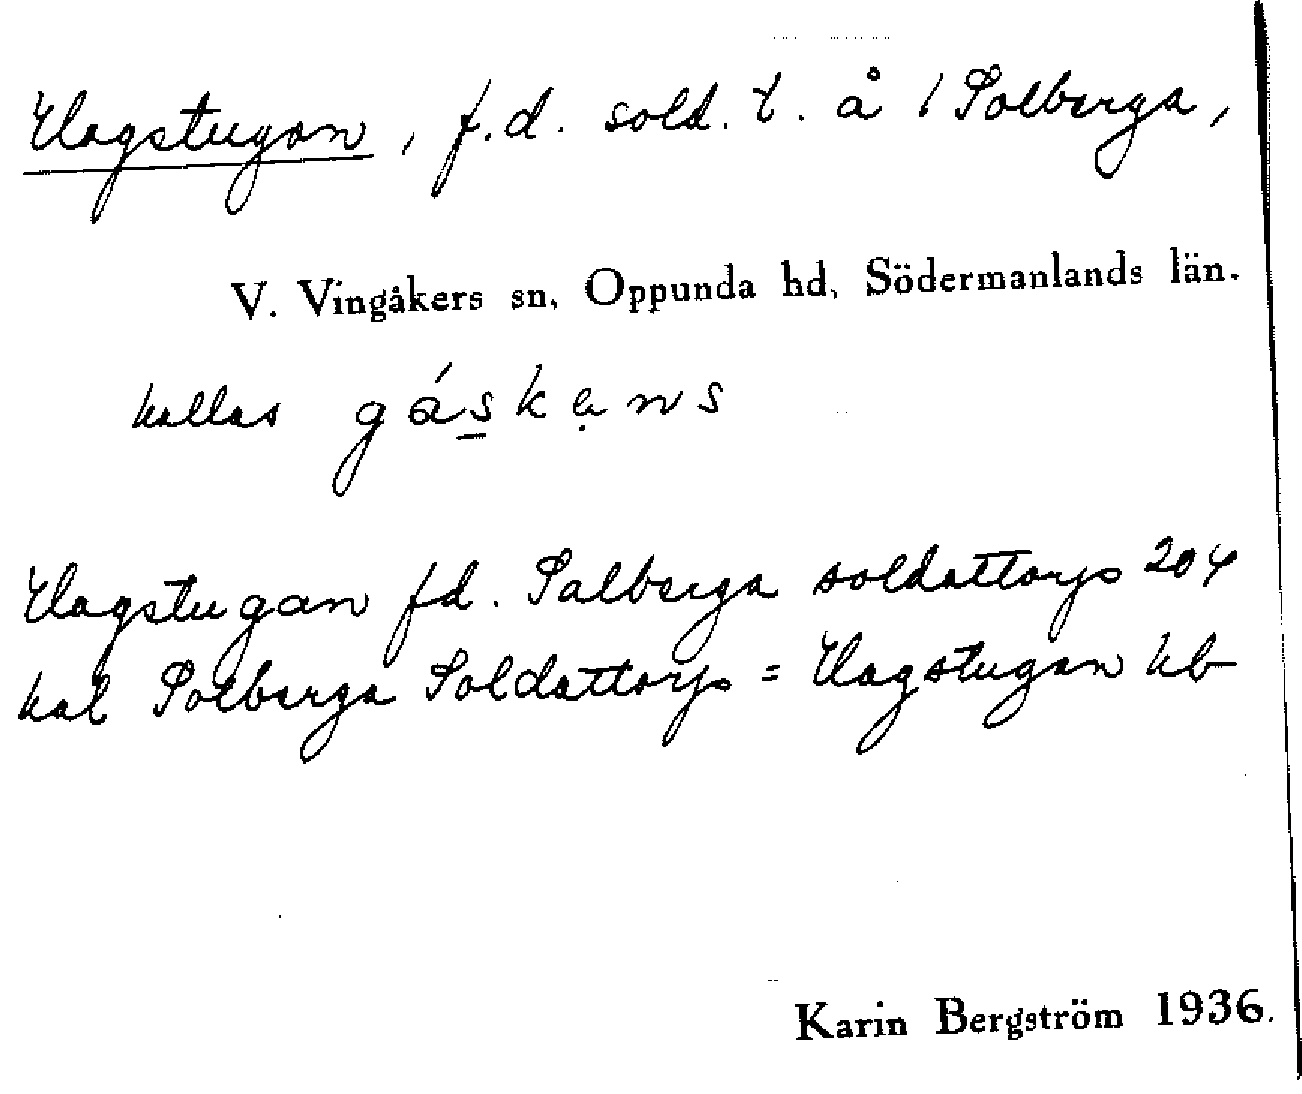 Hagstugan, f.d. sold. t. å / Solberga,
V. Vingåkers sn, Oppunda hd, Södermanlands län.
kallas gáskans
Hagstugan fd. Solberga soldattorp 204
kal Solberga Soldattorp = Hagstugan hb
Karin Bergström 1936.